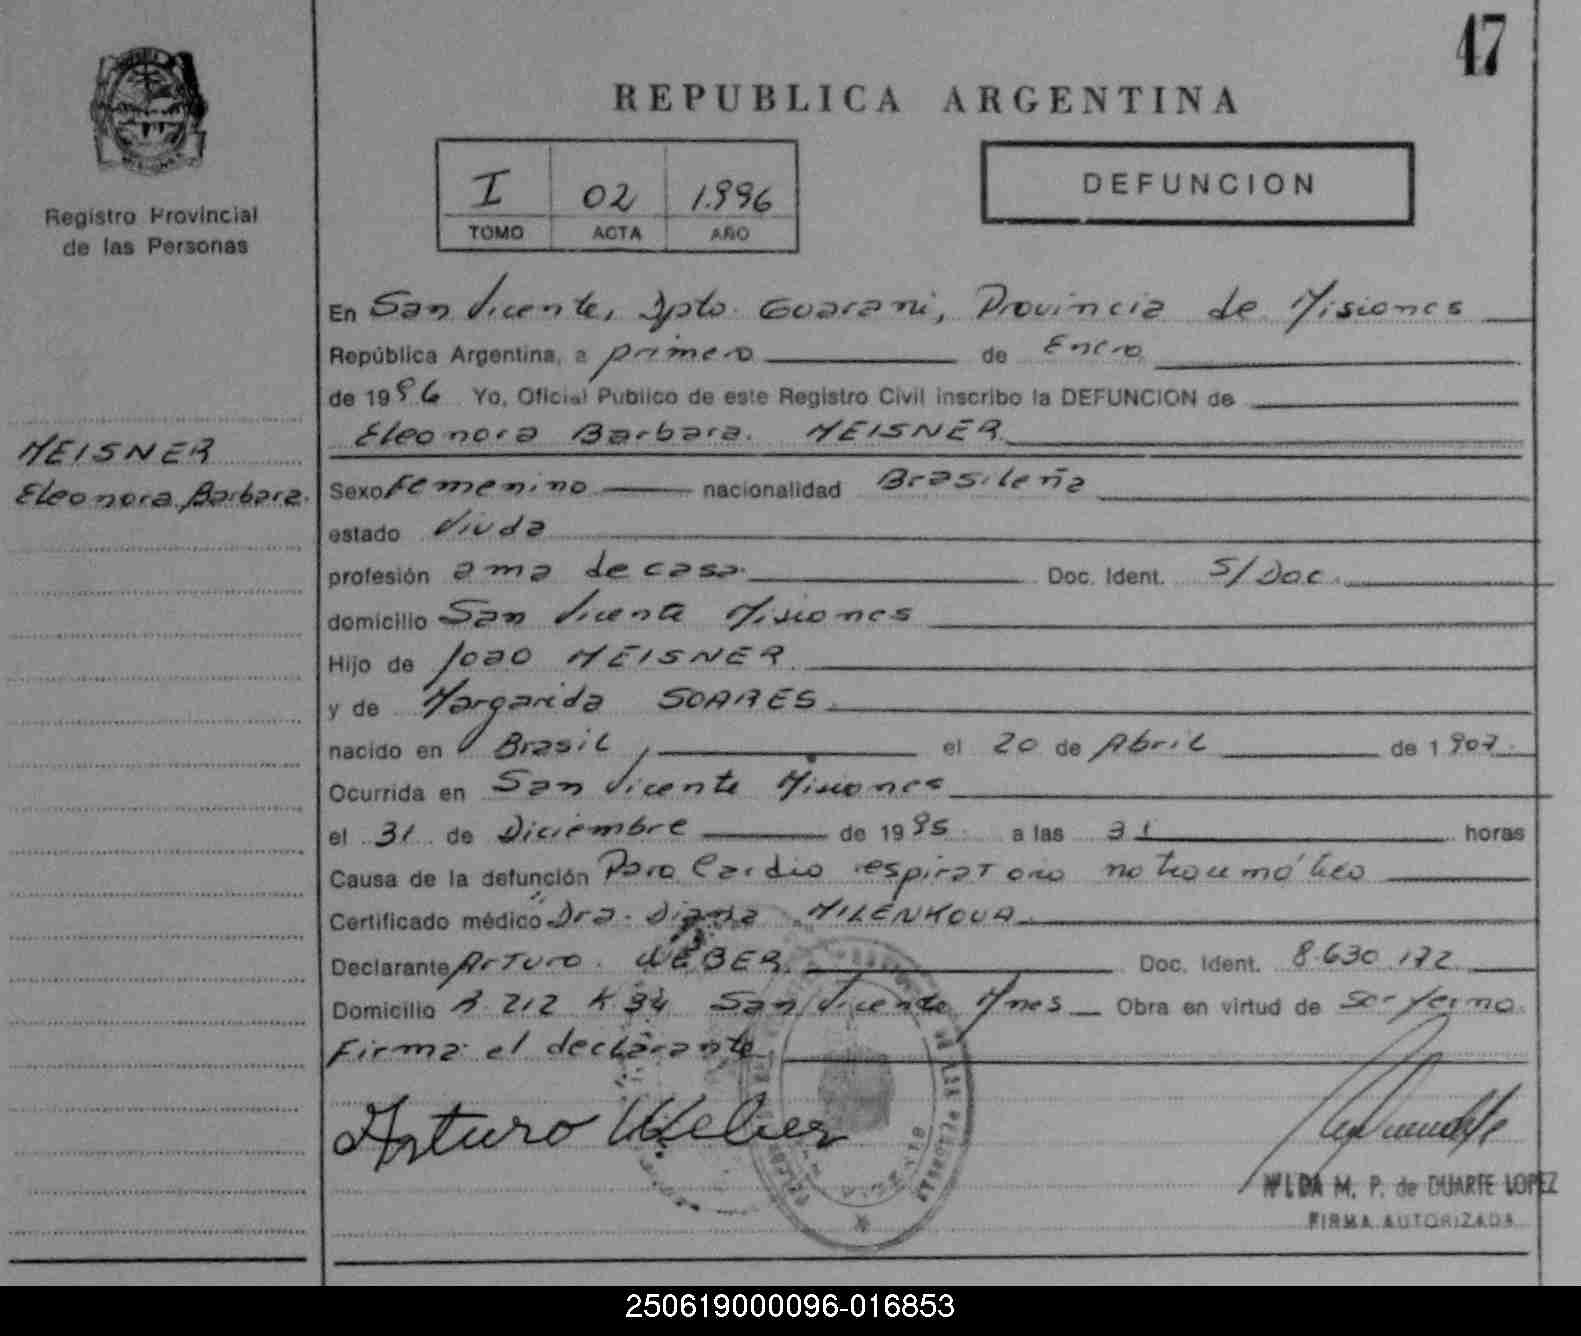 47
REPUBLICA ARGENTINA
I 02 1.996
TOMO ACTA AÑO
DEFUNCION
Registro Provincial
de las Personas
MEISNER
Eleonora Barbara.
En San Vicente, Dpto. Guarani, Provincia de Misiones
República Argentina, a primero de Enero
de 1996 Yo, Oficial Publico de este Registro Civil inscribo la DEFUNCION de
Eleonora Barbara. MEISNER
Sexo Femenino nacionalidad Brasileña
estado Viuda
profesión ama de casa. Doc. Ident. S/Doc.
domicilio San Vicente Misiones
Hijo de Joao MEISNER
y de Margarida SOARES.
nacido en Brasil, el 20 de Abril de 1907.
Ocurrida en San Vicente Misiones
el 31 de Diciembre de 1995 a las 21 horas
Causa de la defunción Paro Cardio respiratorio no traumático
Certificado médico Dra. Diana MILENKOVA
Declarante Arturo WEBER Doc. Ident. 8.630.172
Domicilio R. 212 K 34 San Vicente Mnes Obra en virtud de ser yerno.
Firma el declarante
Arturo Weber
HILDA M. P. de DUARTE LOPEZ
FIRMA AUTORIZADA
250619000096-016853